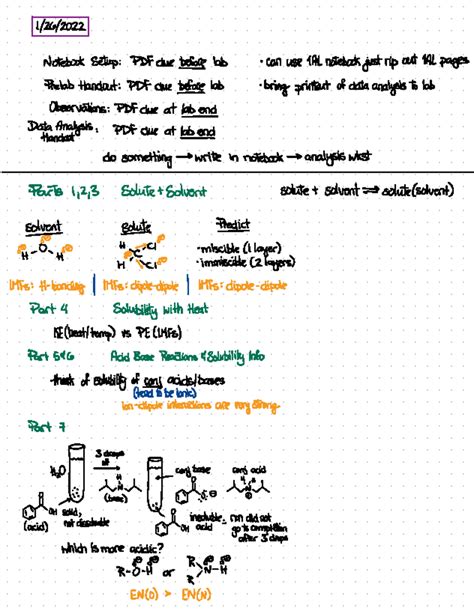 1/26/2022
Notebook Setup: PDF due before lab · can use 1AL notebook just rip out 1AL pages
Prelab Handout: PDF due before lab · bring printout of data analysis to lab
Observations: PDF due at lab end
Data Analysis Handout: PDF due at lab end
do something → write in notebook → analysis wkst
Parts 1,2,3 Solute + Solvent solute + solvent ⇌ solute(solvent)
Solvent Solute Predict
H O H
H C Cl H Cl
· miscible (1 layer)
· immiscible (2 layers)
IMFs: H-bonding | IMFs: dipole-dipole | IMFs: dipole-dipole
Part 4 Solubility with Heat
KE(heat/temp) vs PE(IMFs)
Part 5&6 Acid Base Reactions & Solubility Info
-think of solubility of conj acids/bases
(tend to be ionic)
ion-dipole interactions are very strong
Part 7
3 drops of
H₂O conj base conj acid
(base)
OH solid, not dissolvable
(acid)
insoluble - rxn did not go to completion after 3 drops
which is more acidic?
R-O-H or R R N-H
EN(O) > EN(N)